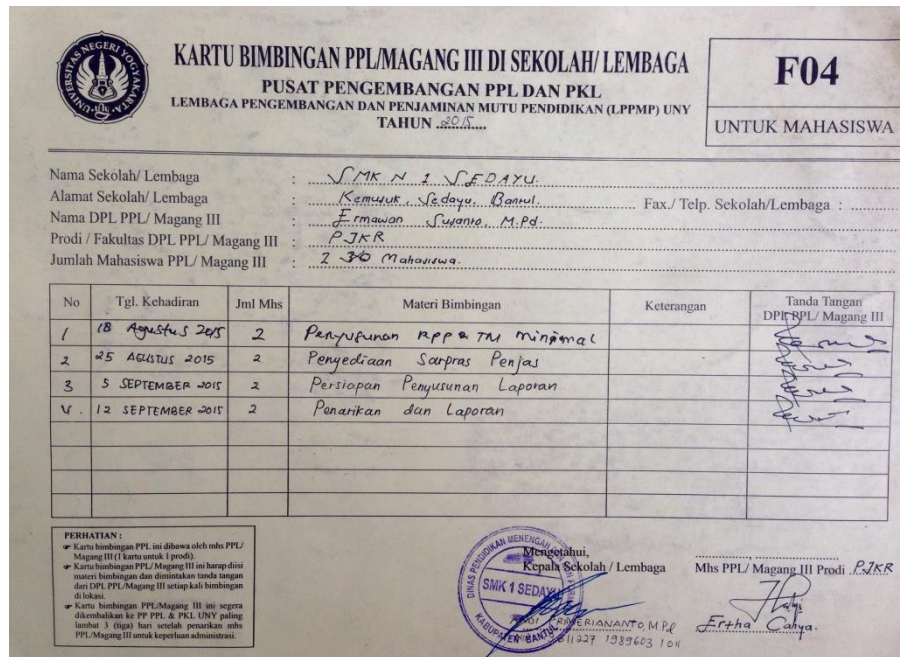 UNIVERSITAS NEGERI YOGYAKARTA
KARTU BIMBINGAN PPL/MAGANG III DI SEKOLAH/ LEMBAGA
PUSAT PENGEMBANGAN PPL DAN PKL
LEMBAGA PENGEMBANGAN DAN PENJAMINAN MUTU PENDIDIKAN (LPPMP) UNY
TAHUN 2015
F04
UNTUK MAHASISWA
Nama Sekolah/ Lembaga : SMK N 1 SEDAYU.
Alamat Sekolah/ Lembaga : Kemusuk, Sedayu, Bantul. Fax./ Telp. Sekolah/Lembaga :
Nama DPL PPL/ Magang III : Ermawan Susanto, M.Pd.
Prodi / Fakultas DPL PPL/ Magang III : PJKR
Jumlah Mahasiswa PPL/ Magang III : 2 Mahasiswa.
No Tgl. Kehadiran Jml Mhs Materi Bimbingan Keterangan Tanda Tangan DPL PPL/ Magang III
1 18 Agustus 2015 2 Penyusunan RPP & TM minimal
2 25 AGUSTUS 2015 2 Penyediaan Sarpras Penjas
3 5 SEPTEMBER 2015 2 Persiapan Penyusunan Laporan
4. 12 SEPTEMBER 2015 2 Penarikan dan Laporan
PERHATIAN :
Kartu bimbingan PPL ini dibawa oleh mhs PPL/
Magang III (1 kartu untuk 1 prodi).
Kartu bimbingan PPL/ Magang III ini harap diisi
materi bimbingan dan dimintakan tanda tangan
dari DPL PPL/Magang III setiap kali bimbingan
di lokasi.
Kartu bimbingan PPL/Magang III ini segera
dikembalikan ke PP PPL & PKL UNY paling
lambat 3 (tiga) hari setelah penarikan mhs
PPL/Magang III untuk keperluan administrasi.
Mengetahui,
Kepala Sekolah / Lembaga
DINAS PENDIDIKAN MENENGAH
SMK 1 SEDAYU
KABUPATEN BANTUL
M.Pd
1227 198903 1 011
Mhs PPL/ Magang III Prodi PJKR
Ertha Cahya.